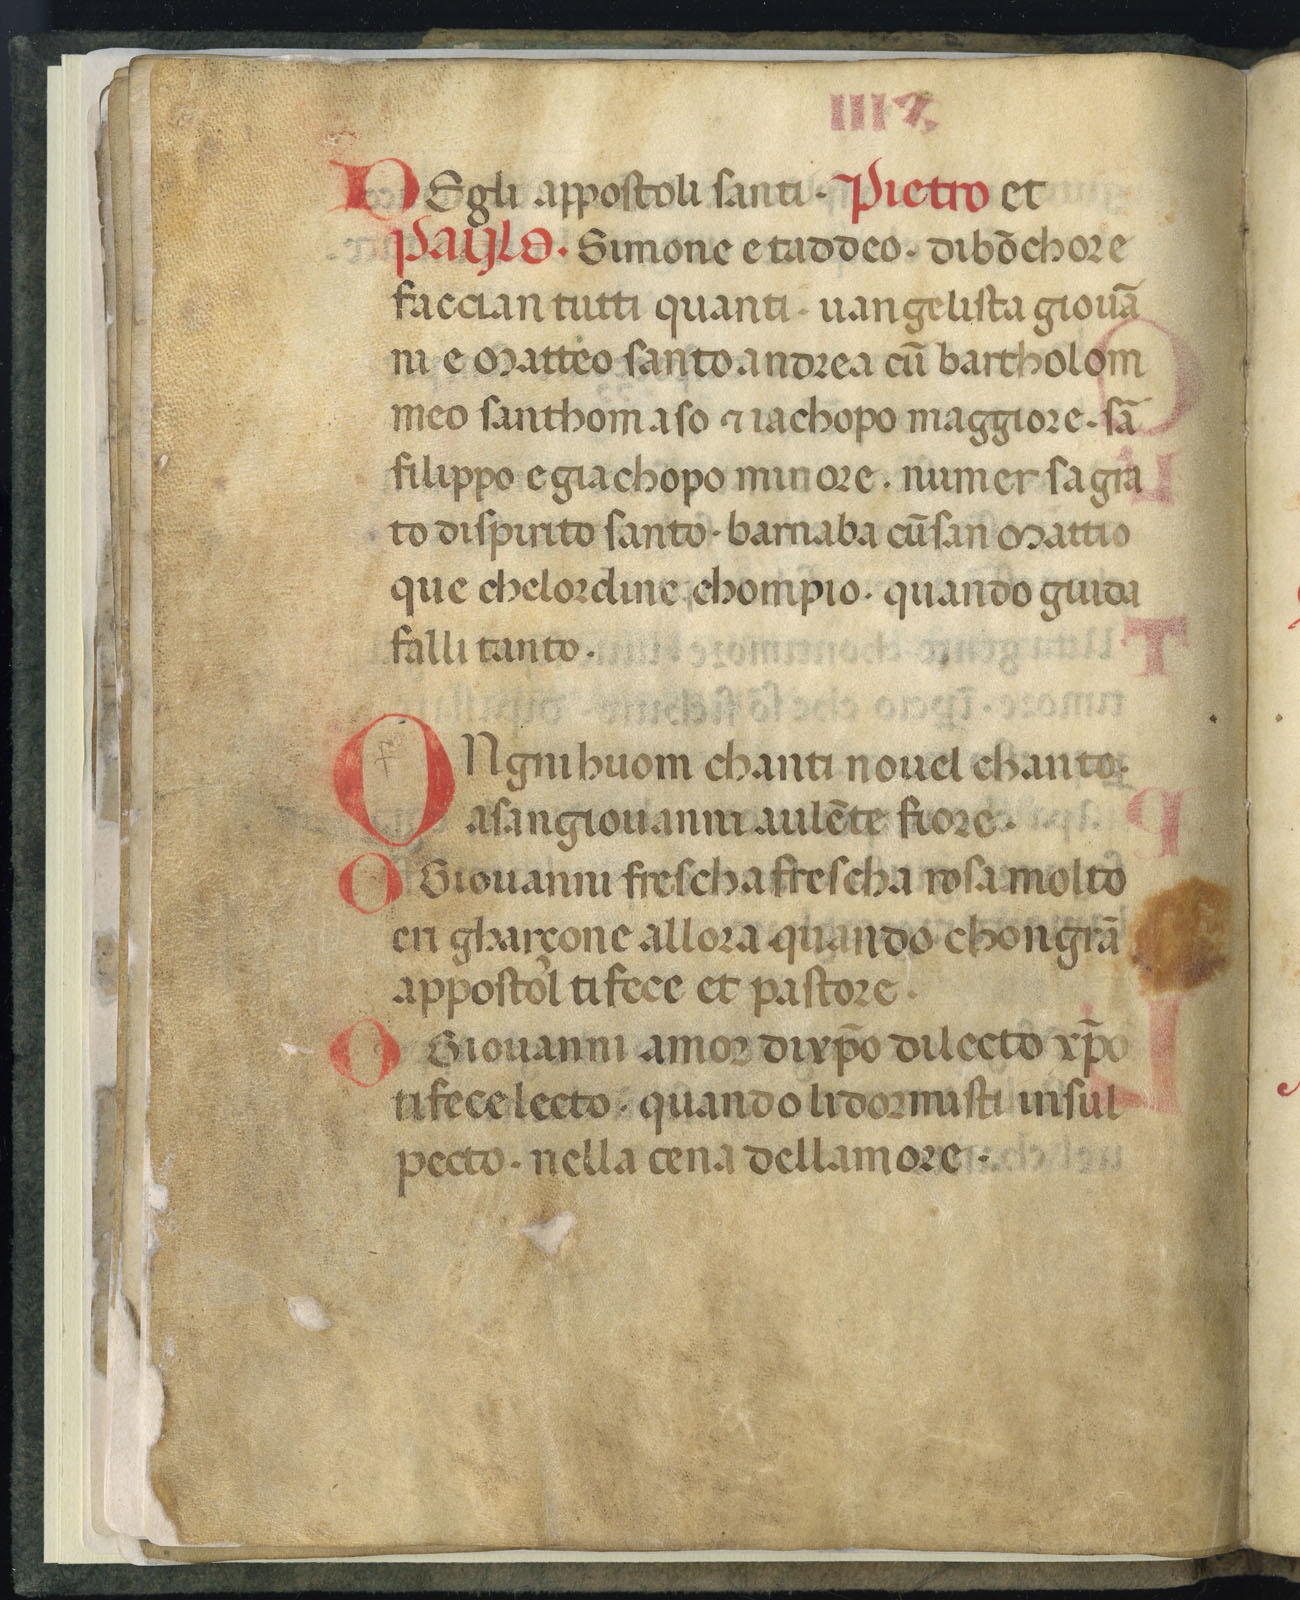 DEgli appostoli santi · Pietro et
Paulo · Simone e taddeo · dibōchore
faccian tutti quanti · uangelista giouā
ni e Matteo santo andrea cū bartholom
meo santhomaso ⁊ iachopo maggiore · sā
filippo e giachopo minore · numer sagra
to dispirito santo · barnaba cūsan Mattio
que chelordine chompio · quando giuda
falli tanto ·
ONgnihuom chanti nouel chanto ·
asangiouanni aulēte fiore ·
O Giouanni frescha frescha rosa molto
eri gharçone allora quando chongrā
appostol ti fece et pastore ·
O Giouanni amor dixp̄o dilecto xp̄o
tifece lecto · quando li dormisti in sul
pecto · nella cena dellamore ·